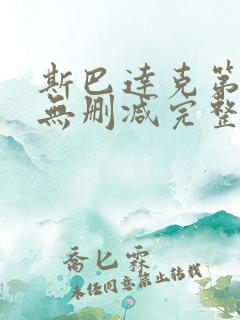 斯巴達克第
無刪減完整
喬匕霖
未經同意禁止轉載